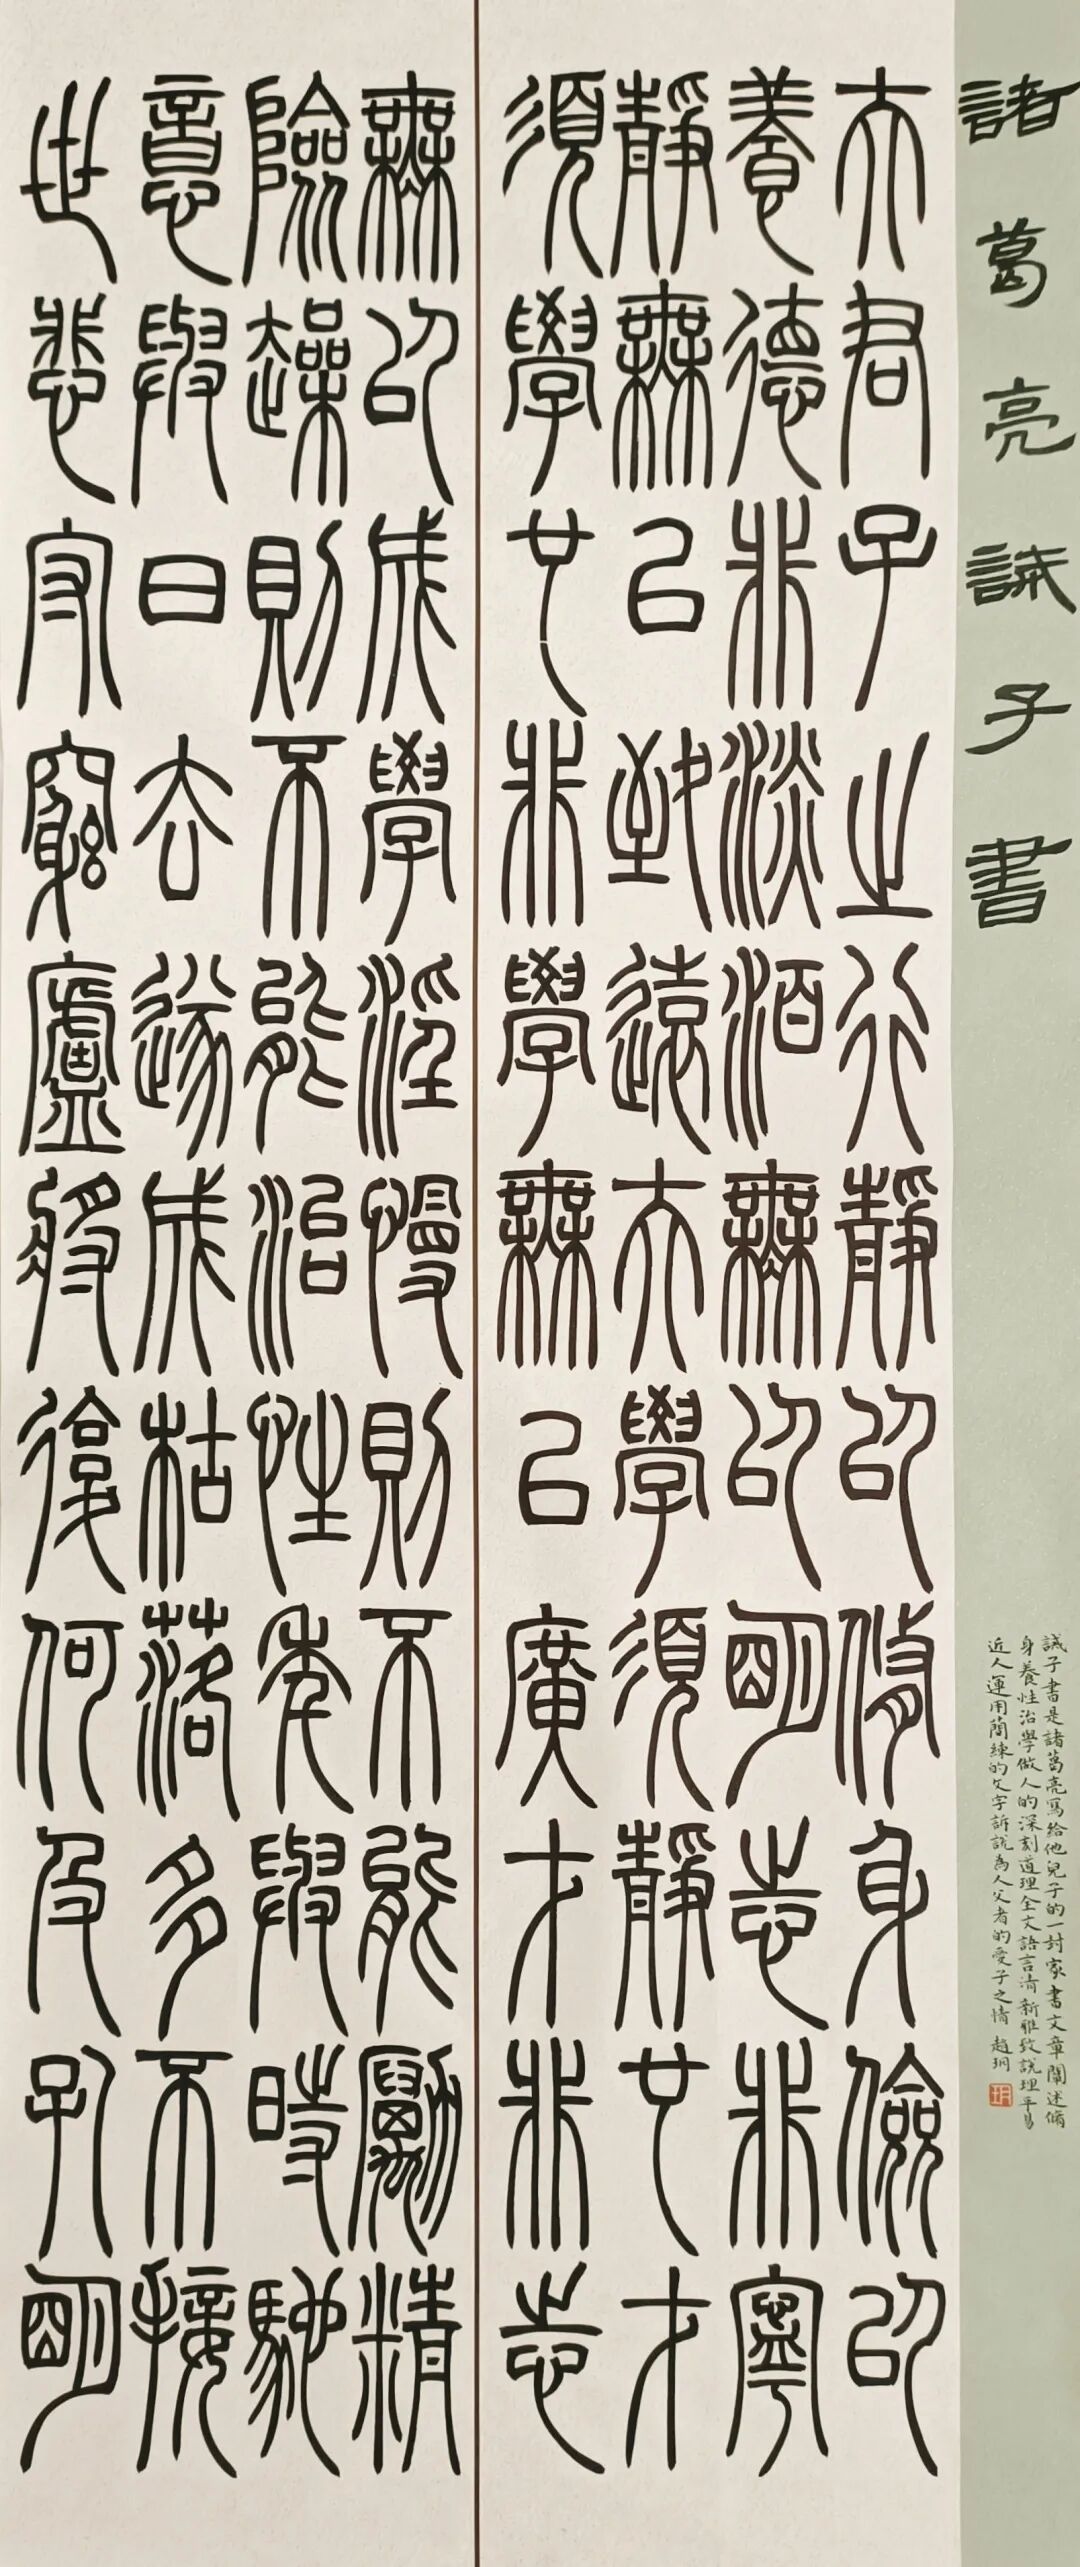 諸葛亮誡子書
誡子書是諸葛亮寫給他兒子的一封家書文章闡述脩
身養性治學做人的深刻道理全文語言清新雅致說理平易
近人運用簡練的文字訴說為人父者的愛子之情 趙玥
玥
夫君子之行靜以脩身儉以
養德非淡泊無以明志非寧
靜無以致遠夫學須靜也才
須學也非學無以廣才非志
無以成學淫慢則不能勵精
險躁則不能治性年與時馳
意與日去遂成枯落多不接
世悲守窮廬將復何及孔明